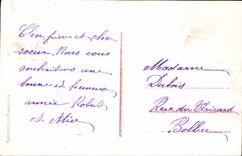 Cher frère et chère
soeur Nous vous
souhaitons une
bonne et heureuse
année Robert
et Alice
Madame
Dubois
Rue du
Bolbec